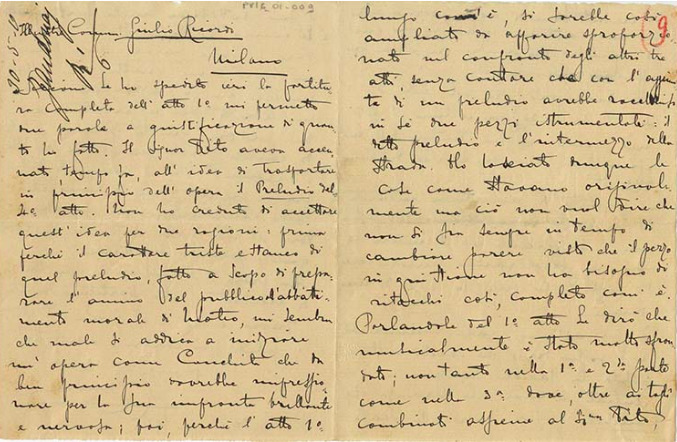 PVIE 01.009
20-5-10
Illustre Comm. Giulio Ricordi
Milano
Siccome Le ho spedito ieri la partitu
ra completa dell' atto 1º mi permetto
due parole a giustificazione di quan
to ho fatto. Il Signor Tito aveva accen
nato, tempo fa, all' idea di trasportare
in principio dell' opera il Preludio del
4º atto. Non ho creduto di accettare
quest' idea per due ragioni: prima
perchè il carattere triste e stanco di
quel preludio, fatto a scopo di prepa
rare l' animo del pubblico all'abbatti
mento morale di Mateo, mi sembra
che male si addica a iniziare
un' opera come Conchita che da
bel principio dovrebbe impressio
nare per la sua impronta brillante
e nervosa; poi, perchè l' atto 1º
9
lungo com'è, si sarebbe così
ampliato da apparire sproporzio
nato nel confronto degli altri tre
atti, senza contare che con l' aggiun
ta di un preludio avrebbe racchiuso
in sè due pezzi istrumentali: il
detto preludio e l'intermezzo della
strada. Ho lasciato dunque le
cose come stavano original
mente ma ciò non vuol dire che
non si sia sempre in tempo di
cambiare parere visto che il pezzo
in questione non ha bisogno di
ritocchi così, completo com' è.
Parlandole del 1º atto Le dirò che
musicalmente è stato molto sfron
dato; non tanto nella 1ª e 2ª parte
come nella 3ª dove, oltre ai tagli
combinati assieme al Sigr Tito,